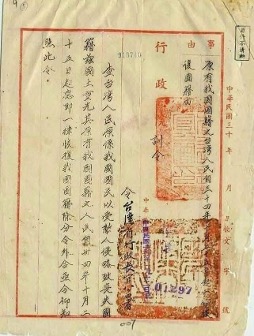 中華民國三十 年 月 日發文 字 號
事由
原有我國國籍之台灣人民自三十四年
復國籍由
行政
訓令
令台灣省行政長官公署
查台灣人民原係我國國民以受敵人侵略致喪失國
籍茲國土重光其原有我國國籍之人民自卅四年十月二
十五日起應即一律恢復我國國籍除分令外合亟令仰知
照此令
01297